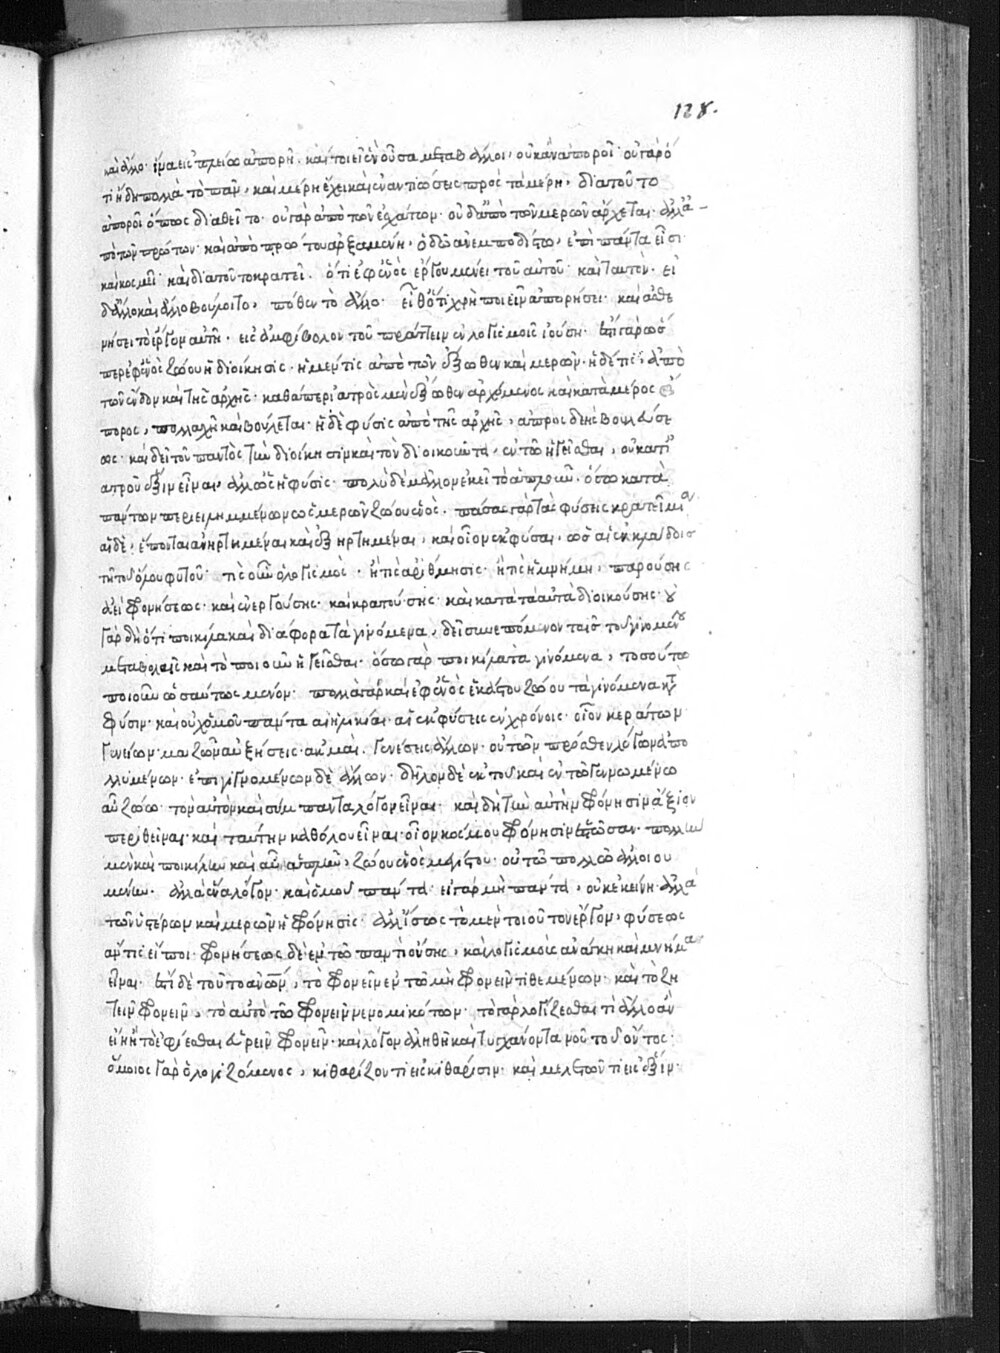 καὶ ἄλλο· ἵνα εἰς πλείω ἀπορῆ. καίτοι εἰ ἓν οὖσα μεταβάλλοι, οὐκ ἂν ἀποροῖ· οὐ γὰρ ὅ
τι ἤδη πολλὰ τὸ πᾶν, καὶ μέρη ἔχει καὶ ἐναντιώσεις πρὸς τὰ μέρη, διὰ τοῦτο
ἀποροῖ ὅπως διαθεῖτο· οὐ γὰρ ἀπὸ τῶν ἐσχάτων· οὐδ' ἀπὸ τῶν μερῶν ἄρχεται· ἀλλ' ἀ-
πὸ τῶν πρώτων· καὶ ἀπὸ πρώτου ἀρξαμένη, ὁδῶ ἀνεμποδίστω, ἐπὶ πάντα εἶσι
καὶ κοσμεῖ· καὶ διὰ τοῦτο κρατεῖ. ὅτι ἐφ' ἑνὸς ἔργου μένει τοῦ αὐτοῦ καὶ ταυτόν· εἰ
δ' ἄλλο καὶ ἄλλο βούλοιτο, πόθεν τὸ ἄλλο· εἶθ' ὅτι χρὴ ποιεῖν ἀπορήσει· καὶ ἀσθε
νήσει τὸ ἔργον αὐτῆ· εἰς ἀμφίβολον τοῦ πράττειν ἐν λογισμοῖς ἰούση· ἔστι γὰρ ὥσ
περ ἐφ' ἑνὸς ζώου ἡ διοίκησις· ἡ μέν τις ἀπὸ τῶν ἔξωθεν καὶ μερῶν· ἡ δέ τις, ἀπὸ
τῶν ἔνδον καὶ τῆς ἀρχῆς· καθάπερ ἰατρὸς μὲν ἔξωθεν ἀρχόμενος καὶ κατὰ μέρος ἄ
πορος, πολλαχῆ καὶ βουλεύεται· ἡ δὲ φύσις ἀπὸ τῆς ἀρχῆς, ἀπροσδεὴς βουλεύσε
ως· καὶ δεῖ τοῦ παντὸς τὴν διοίκησιν καὶ τὸν διοικοῦντα, ἐν τῶ ἡγεῖσθαι, οὐ κατ' ἰ
ατροῦ ἕξιν εἶναι, ἀλλ' ὡς ἡ φύσις· πολὺ δὲ μᾶλλον ἐκεῖ τὸ ἁπλοῦν, ὅσω κατὰ
πάντων περιειλημμένων ὡς μερῶν ζώου ἑνός. πάσας γὰρ τὰς φύσεις κρατεῖ μία,
αἱ δὲ, ἕπονται ἀνηρτημέναι καὶ ἐξηρτημέναι, καὶ οἷον ἐκφῦσαι, ὡς αἱ ἐν κλάδοις
τῆ τοῦ ὅλου φυτοῦ· τίς οὖν ὁ λογισμὸς· ἢ τίς ἀρίθμησις· ἢ τίς ἡ μνήμη, παρούσης
ἀεὶ φρονήσεως· καὶ ἐνεργούσης· καὶ κρατούσης· καὶ κατὰ τὰ αὐτὰ διοικούσης· οὐ
γὰρ δὴ ὅτι ποικίλα καὶ διάφορα τὰ γινόμενα, δεῖ συνεπόμενον ταῖς τοῦ γινομένου
μεταβολαῖς καὶ τὸ ποιοῦν ἡγεῖσθαι· ὅσω γὰρ ποικίλα τὰ γινόμενα, τοσούτω
ποιοῦν ὡσαύτως μένον· πολλὰ γὰρ καὶ ἐφ' ἑνὸς ἑκάστου ζώου τὰ γινόμενα κτ
φύσιν· καὶ οὐχ ὁμοῦ πάντα αἱ ἡλικίαι· αἱ ἐκφύσεις ἐν χρόνοις· οἷον κεράτων
γενείων· μαζῶν αὐξήσεις· ἀκμαί. γενέσεις ἄλλων· οὐ τῶν πρόσθεν λόγων ἀπο
λλυμένων· ἐπιγιγνομένων δὲ ἄλλων· δῆλον δὲ ἐκ τοῦ καὶ ἐν τῶ γεννωμένω
αὖ ζώω· τὸν αὐτὸν καὶ σύμπαντα λόγον εἶναι· καὶ δὴ τὴν αὐτὴν φρόνησιν ἄξιον
περιθεῖναι· καὶ ταύτην καθόλου εἶναι· οἷον κόσμου φρόνησιν ἑστῶσαν· πολλὴν
μὲν καὶ ποικίλην καὶ αὖ ἁπλῆν, ζώου ἑνὸς μεγίστου· οὐ τῶ πολλῶ ἀλλοιου
μένην· ἀλλὰ ἕνα λόγον· καὶ ὁμοῦ πάντα· εἰ γὰρ μὴ πάντα, οὐκ ἐκείνη ἀλλὰ
τῶν ὑστέρων καὶ μερῶν ἡ φρόνησις· ἀλλ' ἴσως τὸ μὲν τοιοῦτον ἔργον, φύσεως
ἄν τις εἴποι· φρονήσεως δὲ ἐν τῶ παντὶ οὔσης, καὶ λογισμοὺς ἀνάγκη καὶ μνήμας
εἶναι· ἔστι δὲ τοῦτο ἀνῶν, τὸ φρονεῖν ἐν τῶ μὴ φρονεῖν τιθεμένων· καὶ τὸ ζη
τεῖν φρονεῖν, τὸ αὐτὸ τῶ φρονεῖν νενομικότων· τὸ γὰρ λογίζεσθαι τί ἄλλο ἂν
εἴη ἢ τὸ ἐφίεσθαι εὑρεῖν φρόνησιν· καὶ λόγον ἀληθῆ καὶ τυγχάνοντα νοῦ τοῦ ὄντος·
ὅμοιος γὰρ ὁ λογιζόμενος, κιθαρίζοντι εἰς κιθάρισιν· καὶ μελετῶντι εἰς ἕξιν·